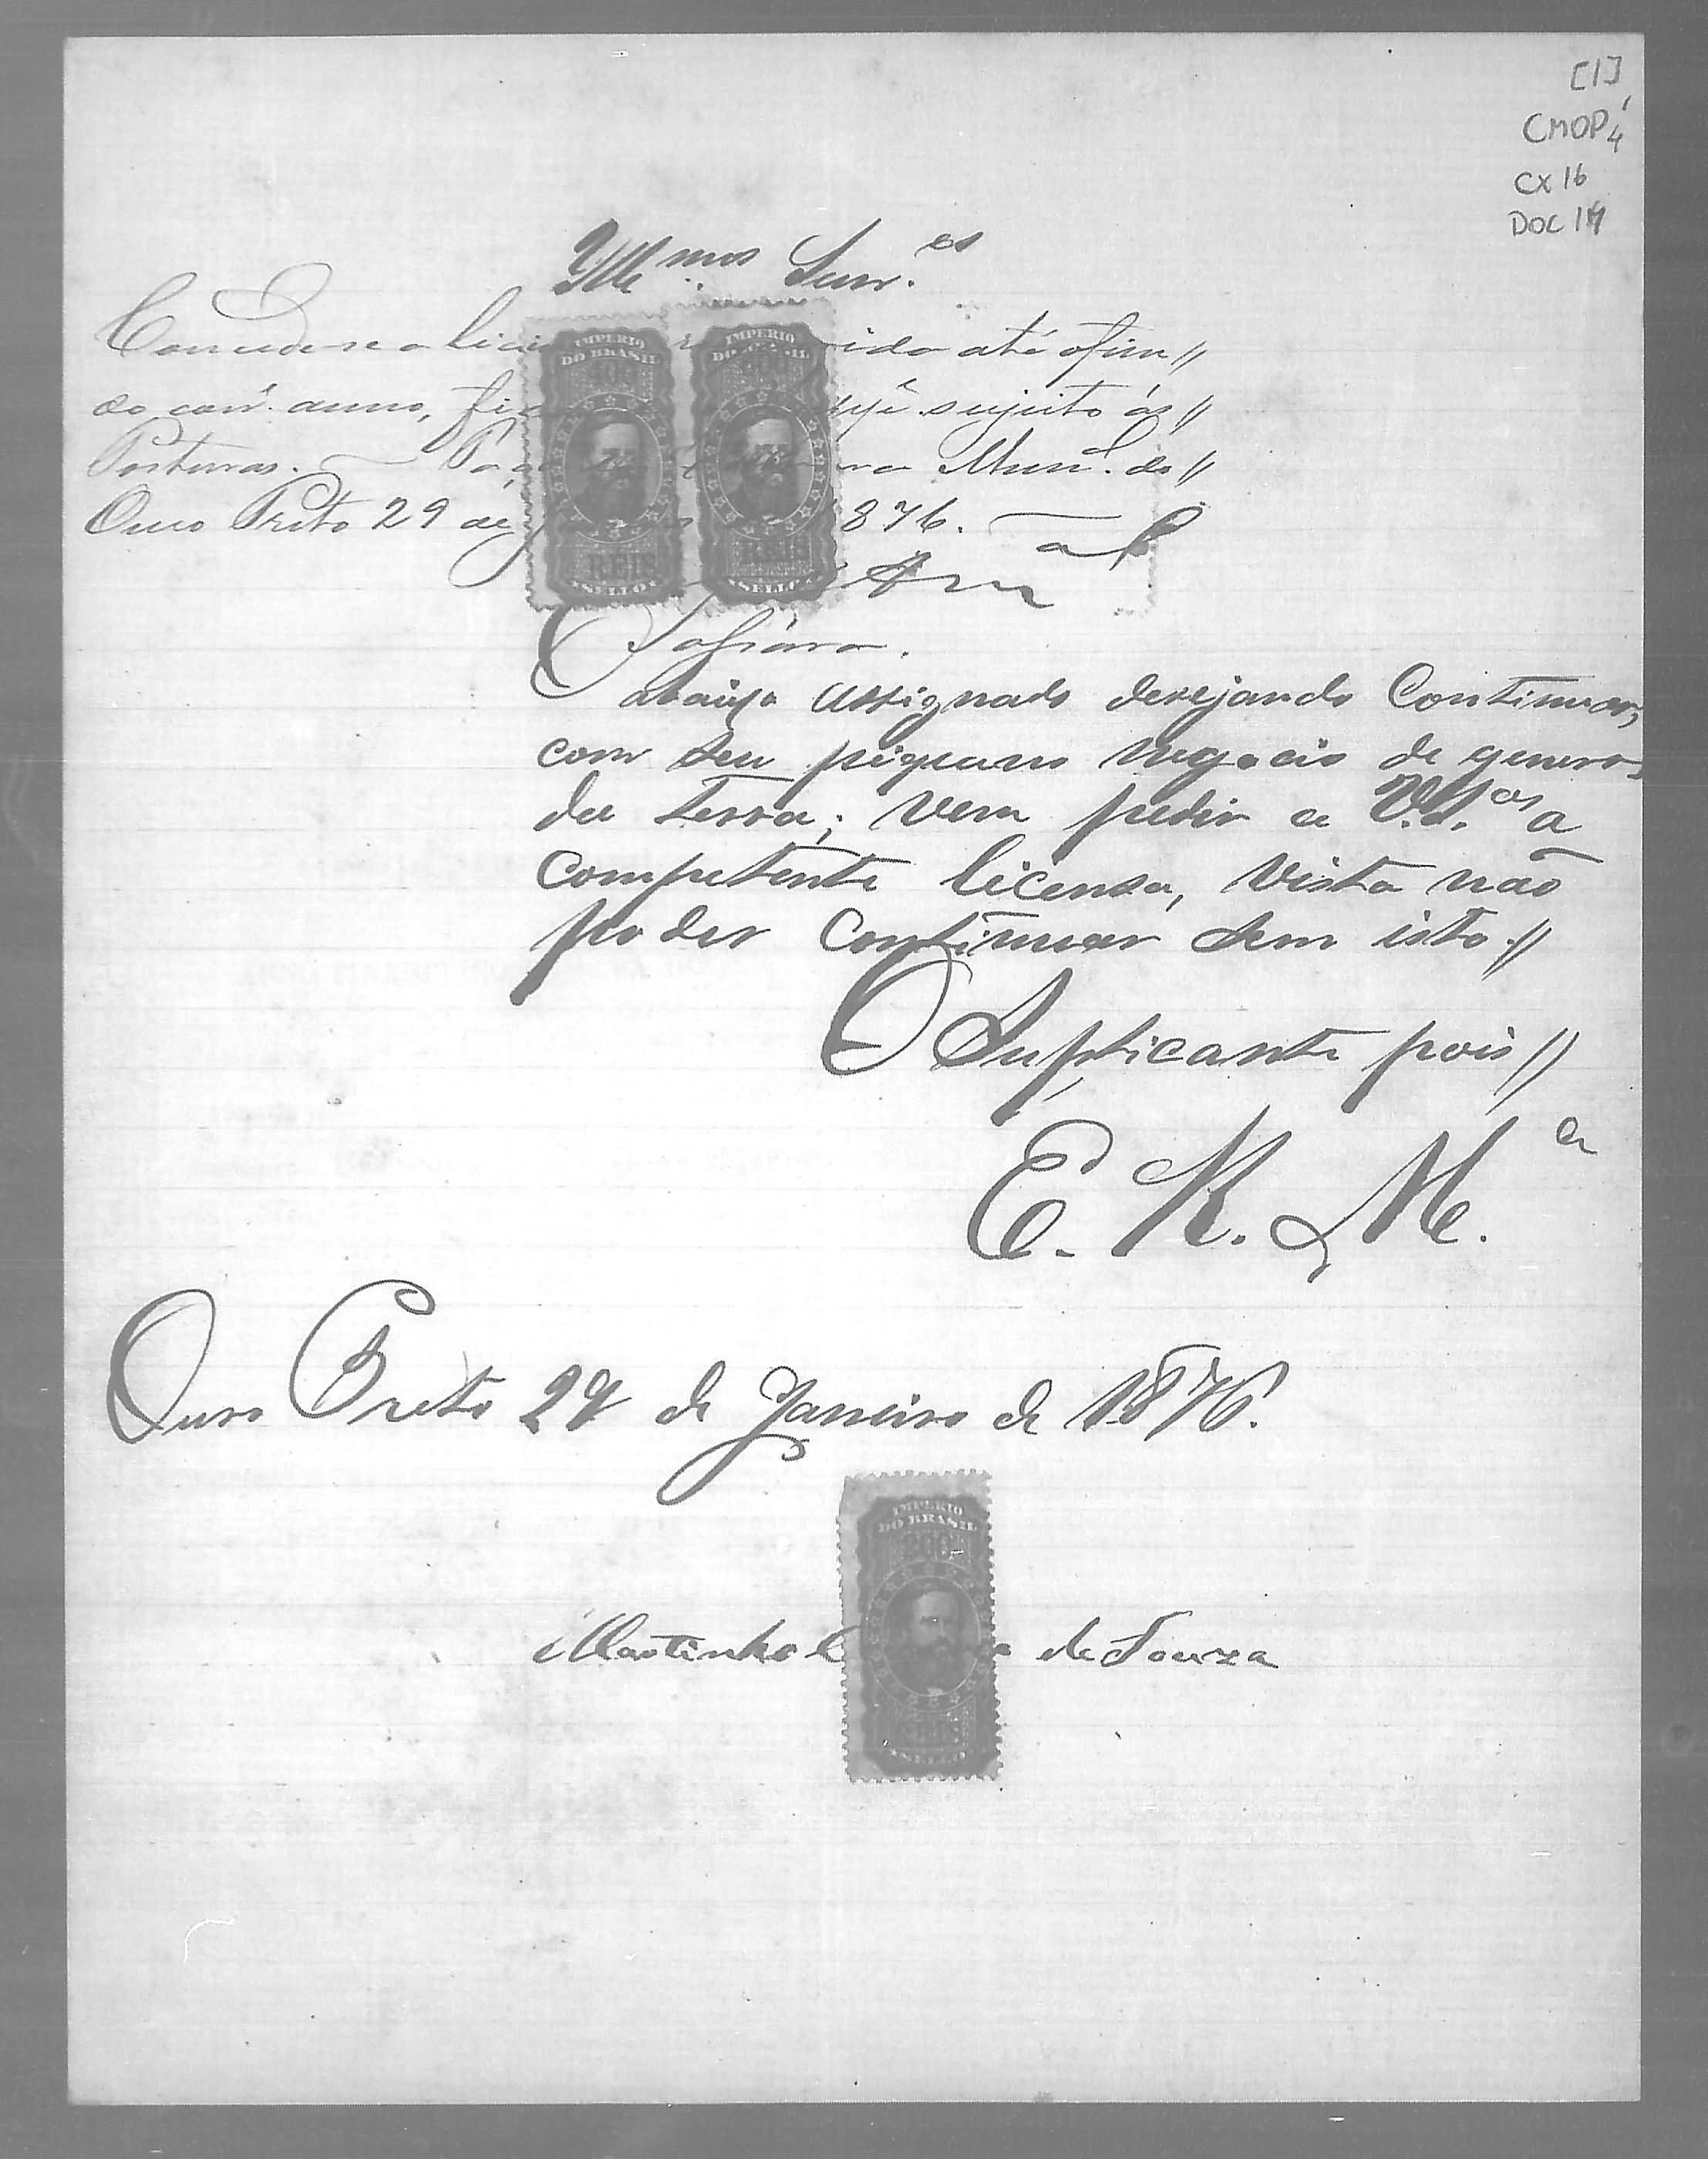 [1]
CMOP 4
CX 16
DOC 14
Illmos Snres
Concede-se a lic ida até o fim //
do corr. anno, fi sujeito ás //
Posturas. — Pa ra Munal. do //
Ouro Preto 29 de 876. —
IMPERIO DO BRASIL
REIS
SELLO
IMPERIO
REIS
SELLO
O abaixo assignado desejando Continuar,
com seu piqueno negocio de generos
da terra; vem pedir a V.Sas a
competente licensa, visto não
poder Continuar sem isto. //
O Suplicante pois //
E. R. Mca
Ouro Preto 29 de Janeiro de 1876.
IMPERIO DO BRASIL
200
SELLO
Martinho de Souza